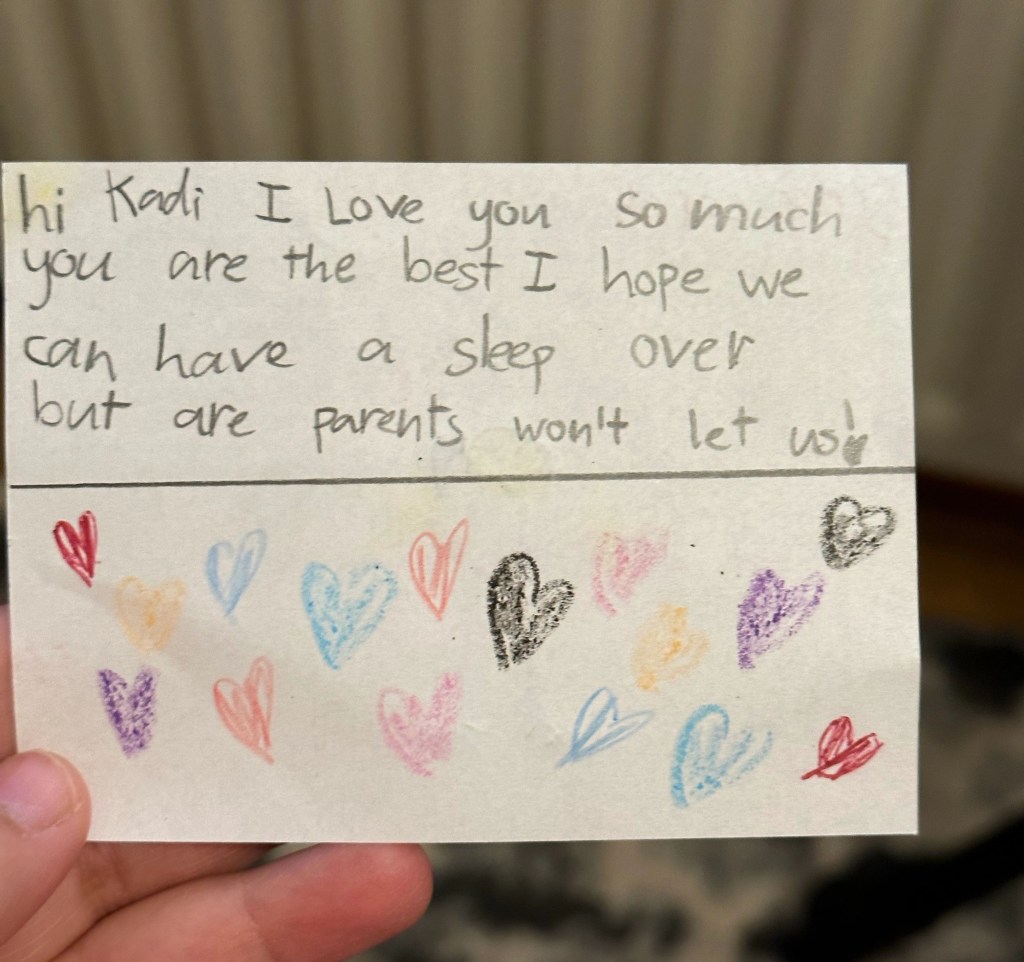 hi Kadi I Love you so much
you are the best I hope we
can have a sleep over
but are parents won't let us!